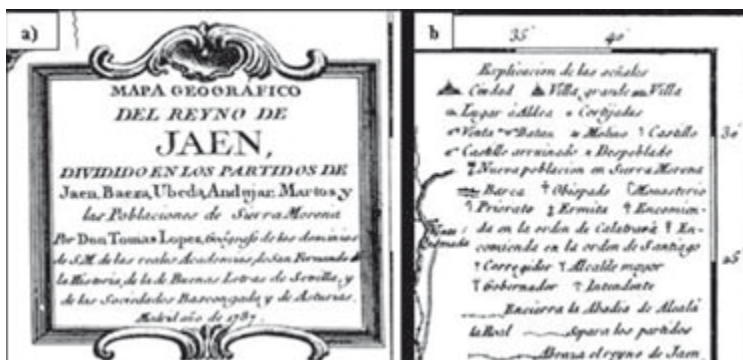 a)
MAPA GEOGRÁFICO
DEL REYNO DE
JAEN,
DIVIDIDO EN LOS PARTIDOS DE
Jaen, Baeza, Ubeda, Andujar, Martos, y
las Poblaciones de Sierra Morena
Por Don Tomas Lopez, Geógrafo de los dominios
de S.M. de las reales Academias, de San Fernando de
la Historia, de la de Buenas Letras de Sevilla, y
de las Sociedades Bascongada y de Asturias.
Madrid año de 1787.
b
35' 40'
Explicacion de las señales
Ciudad Villa grande Villa
Lugar ó Aldea Cortijadas
Venta Batan Molino Castillo
Castillo arruinado Despoblado
Nueva poblacion en Sierra Morena
Barca Obispado Monasterio
Priorato Ermita Encomien-
da en la orden de Calatrava En-
comienda en la orden de Santiago
Corregidor Alcalde mayor
Gobernador Intendente
Encierra la Abadia de Alcalá
la Real separa los partidos
Abraza el reyno de Jaen
30'
25